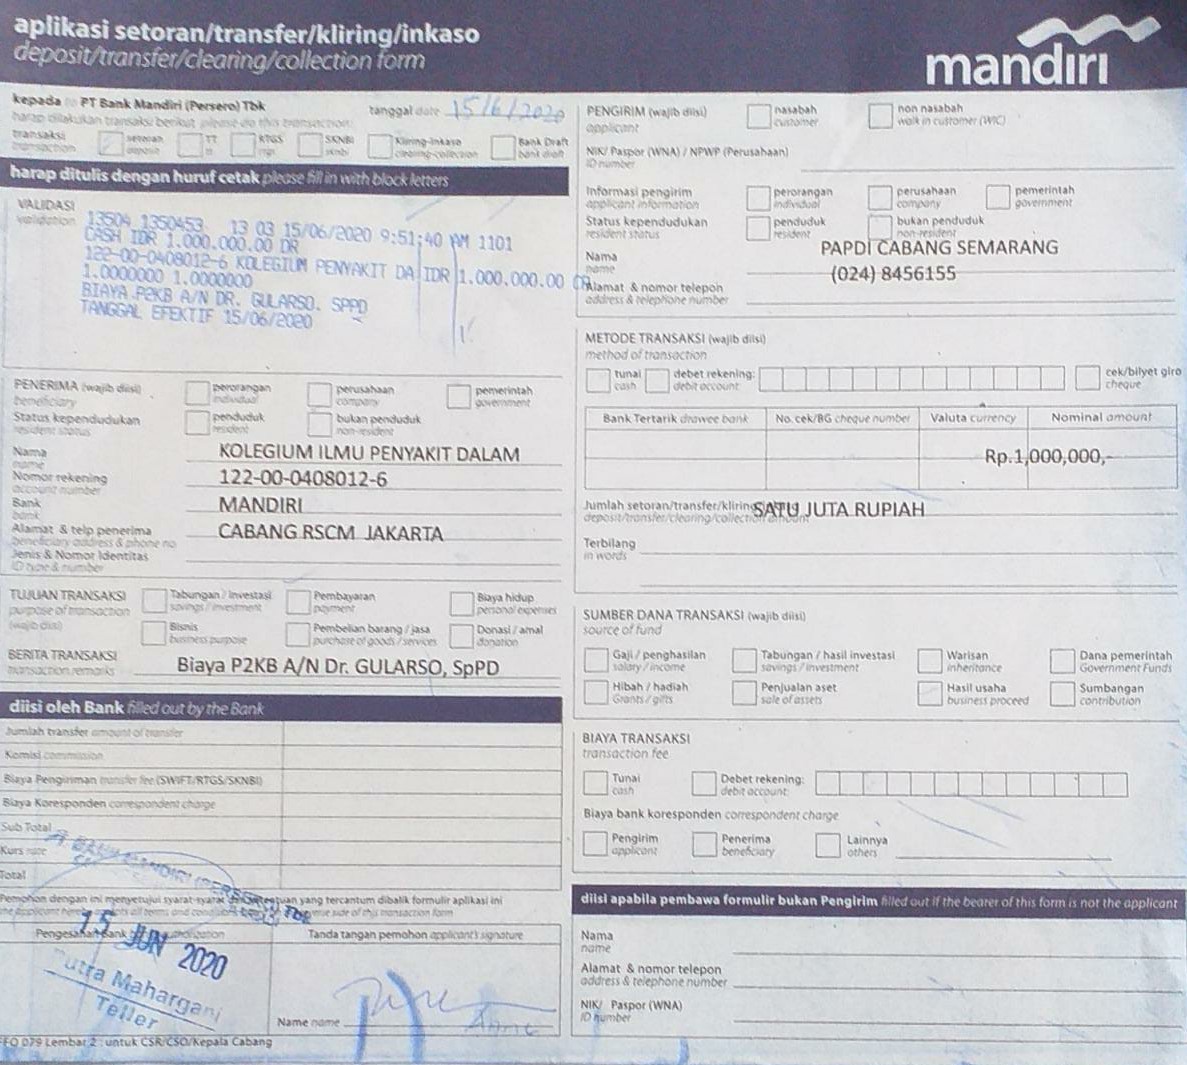 aplikasi setoran/transfer/kliring/inkaso
deposit/transfer/clearing/collection form
mandiri
kepada to PT Bank Mandiri (Persero) Tbk
harap dilakukan transaksi berikut please do this transaction:
tanggal date 15/6/2020
transaksi transaction
setoran deposit
TT tt
RTGS rtgs
SKNBI sknbi
Kliring-Inkaso clearing-collection
Bank Draft bank draft
harap ditulis dengan huruf cetak please fill in with block letters
VALIDASI
validation
13504 1350453 13 03 15/06/2020 9:51:40 AM 1101
CASH IDR 1.000.000.00 DR
122-00-0408012-6 KOLEGIUM PENYAKIT DA IDR 1.000.000.00 CR
1.0000000 1.0000000
BIAYA P2KB A/N DR. GULARSO. SPPD
TANGGAL EFEKTIF 15/06/2020
PENERIMA (wajib diisi)
beneficiary
perorangan individual
perusahaan company
pemerintah government
Status kependudukan
resident status
penduduk resident
bukan penduduk non-resident
Nama
name
KOLEGIUM ILMU PENYAKIT DALAM
Nomor rekening
account number
122-00-0408012-6
Bank
bank
MANDIRI
Alamat & telp penerima
beneficiary address & phone no
CABANG RSCM JAKARTA
Jenis & Nomor Identitas
ID type & number
TUJUAN TRANSAKSI
purpose of transaction
(wajib diisi)
Tabungan / Investasi savings / investment
Pembayaran payment
Biaya hidup personal expenses
Bisnis business purpose
Pembelian barang / jasa purchase of goods / services
Donasi / amal donation
BERITA TRANSAKSI
transaction remarks
Biaya P2KB A/N Dr. GULARSO, SpPD
diisi oleh Bank filled out by the Bank
Jumlah transfer amount of transfer
Komisi commission
Biaya Pengiriman transfer fee (SWIFT/RTGS/SKNBI)
Biaya Koresponden correspondent charge
Sub Total
Kurs rate
Total
BANK MANDIRI (PERSERO) Tbk
Pemohon dengan ini menyetujui syarat-syarat dan ketentuan yang tercantum dibalik formulir aplikasi ini
Pengesahan Bank
Tanda tangan pemohon applicant's signature
15 JUN 2020
Putra Mahargani
Teller
Name name
FO 079 Lembar 2 : untuk CSR/CSO/Kepala Cabang
PENGIRIM (wajib diisi)
applicant
nasabah customer
non nasabah walk in customer (WIC)
NIK/ Paspor (WNA) / NPWP (Perusahaan)
ID number
Informasi pengirim
applicant information
perorangan individual
perusahaan company
pemerintah government
Status kependudukan
resident status
penduduk resident
bukan penduduk non-resident
Nama
name
PAPDI CABANG SEMARANG
(024) 8456155
Alamat & nomor telepon
address & telephone number
METODE TRANSAKSI (wajib diisi)
method of transaction
tunai cash
debet rekening: debit account:
cek/bilyet giro cheque
Bank Tertarik drawee bank
No. cek/BG cheque number
Valuta currency
Nominal amount
Rp.1,000,000,-
Jumlah setoran/transfer/kliring
deposit/transfer/clearing/collection amount
SATU JUTA RUPIAH
Terbilang
in words
SUMBER DANA TRANSAKSI (wajib diisi)
source of fund
Gaji / penghasilan salary / income
Tabungan / hasil investasi savings / investment
Warisan inheritance
Dana pemerintah Government Funds
Hibah / hadiah Grants / gifts
Penjualan aset sale of assets
Hasil usaha business proceed
Sumbangan contribution
BIAYA TRANSAKSI
transaction fee
Tunai cash
Debet rekening: debit account:
Biaya bank koresponden correspondent charge
Pengirim applicant
Penerima beneficiary
Lainnya others
diisi apabila pembawa formulir bukan Pengirim filled out if the bearer of this form is not the applicant
Nama
name
Alamat & nomor telepon
address & telephone number
NIK/ Paspor (WNA)
ID number